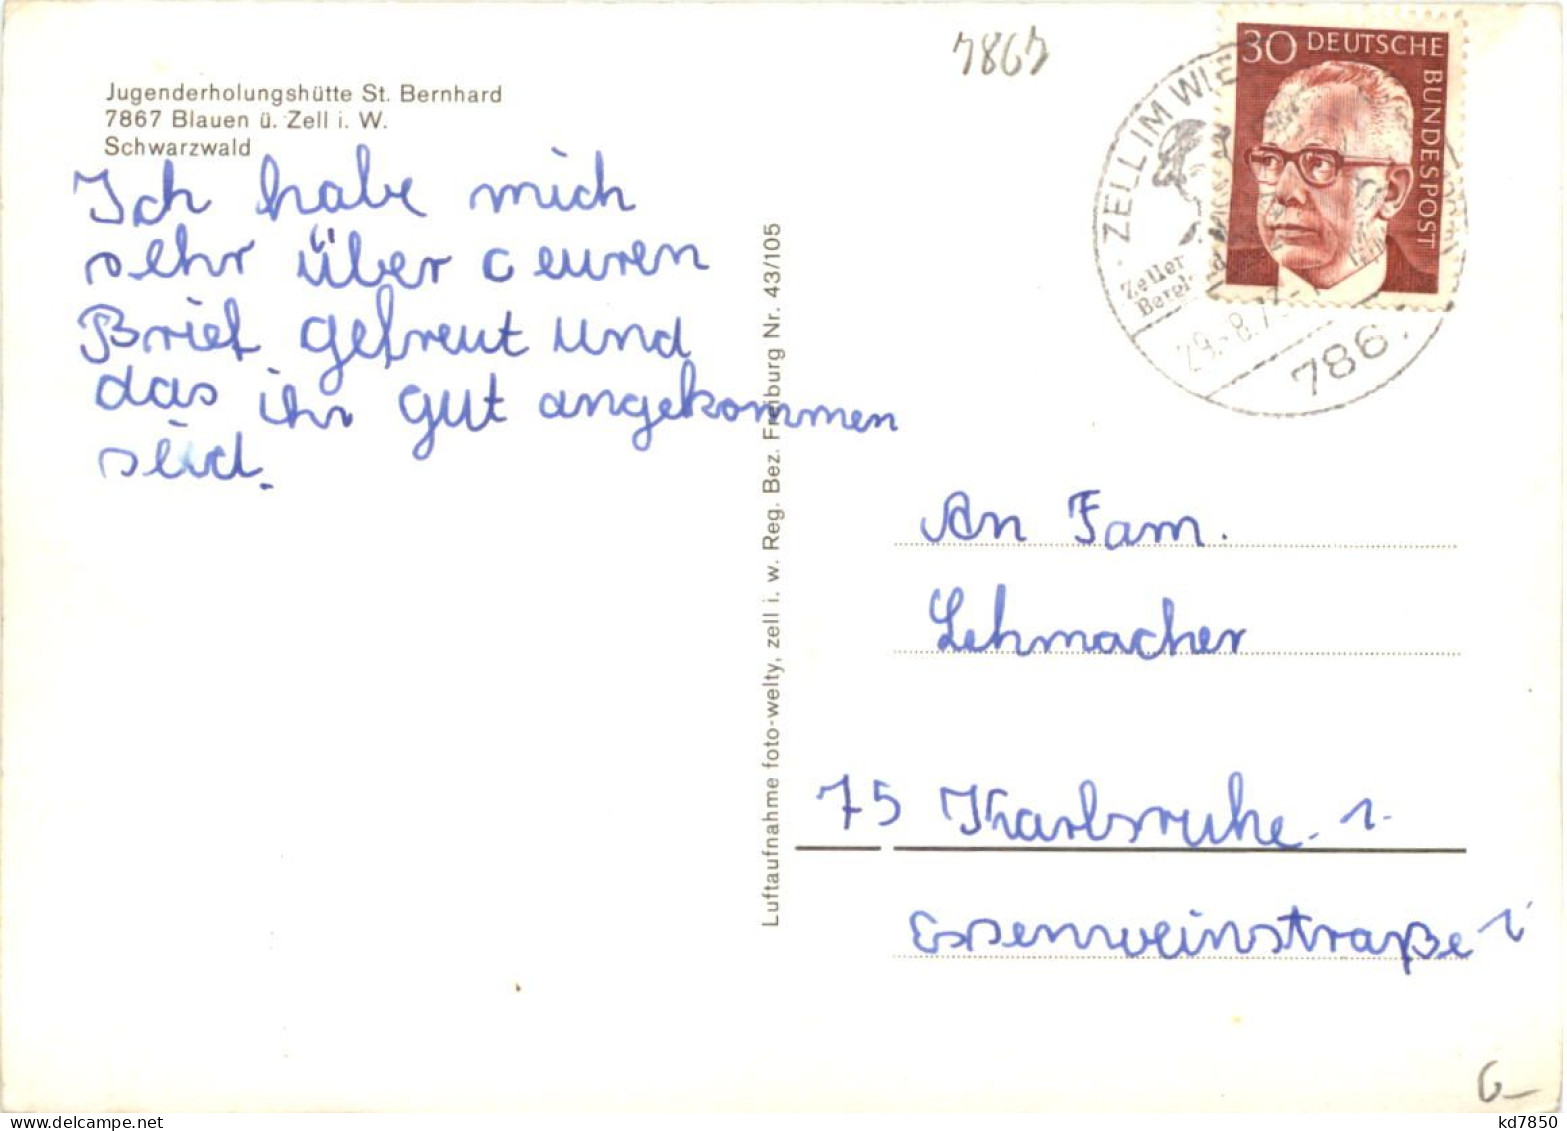 7867
Jugenderholungshütte St. Bernhard
7867 Blauen ü. Zell i. W.
Schwarzwald
Ich habe mich
sehr über euren
Brief gefreut und
das ihr gut angekommen
seid.
Luftaufnahme foto-welty, zell i. w. Reg. Bez. Freiburg Nr. 43/105
30 DEUTSCHE
BUNDESPOST
ZELL IM WIE
Zeller
29.-8.73-
786
An Fam.
Lehmacher
75 Karlsruhe. 1.
Essenweinstraße 1
6-
kd7850